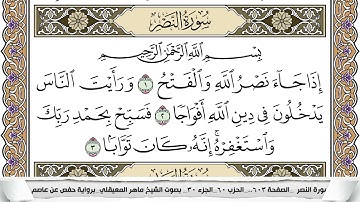 سُورَةُ النَّصْرِ
بِسْمِ اللَّهِ الرَّحْمَٰنِ الرَّحِيمِ
إِذَا جَاءَ نَصْرُ اللَّهِ وَالْفَتْحُ ١ وَرَأَيْتَ النَّاسَ
يَدْخُلُونَ فِي دِينِ اللَّهِ أَفْوَاجًا ٢ فَسَبِّحْ بِحَمْدِ رَبِّكَ
وَاسْتَغْفِرْهُ ۚ إِنَّهُ كَانَ تَوَّابًا ٣
سورة النصر _الصفحة ٦٠٣_ الحزب ٦٠_ الجزء ٣٠_ بصوت الشيخ ماهر المعيقلي برواية حفص عن عاصم